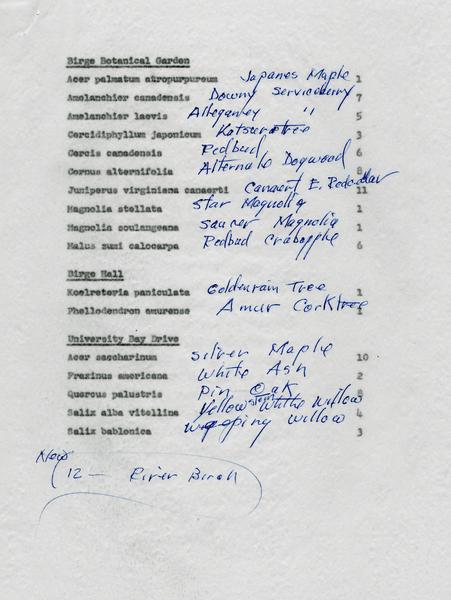 Birge Botanical Garden
Acer palmatum atropurpureum Japanes Maple 1
Amelanchier canadensis Downy Serviceberry 7
Amelanchier laevis Allegameny " 5
Cercidiphyllum japonicum Katsuratree 3
Cercis canadensis Redbud 6
Cornus alternifolia Alternate Dogwood 8
Juniperus virginiana canaerti Canaert E. Redcedar 11
Magnolia stellata Star Magnolia 1
Magnolia soulangeana Saucer Magnolia 1
Malus zumi calocarpa Redbud Crabapple 6
Birge Hall
Koelreteria paniculata Goldenrain Tree 1
Phellodendron amurense Amur Corktree 1
University Bay Drive
Acer saccharinum Silver Maple 10
Fraxinus americana White Ash 2
Quercus palustris Pin Oak
Salix alba vitellina Yellow stem White Willow 4
Salix bablonica weeping willow 3
New
12 — River Birch